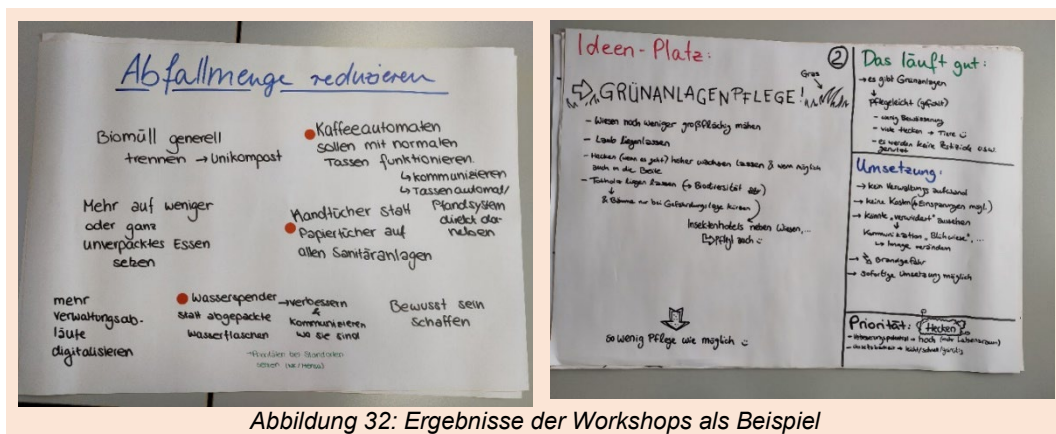 Abfallmenge reduzieren
Biomüll generell
trennen → Unikompost
Kaffeeautomaten
sollen mit normalen
Tassen funktionieren.
↳ kommunizieren
↳ Tassenautomat/
Pfandsystem
direkt da-
neben
Mehr auf weniger
oder ganz
unverpacktes Essen
setzen
Handtücher statt
Papiertücher auf
allen Sanitäranlagen
mehr
verwaltungsab-
läufe
digitalisieren
Wasserspender → verbessern
statt abgepackte & kommunizieren
Wasserflaschen wo sie sind
Bewusst sein
schaffen
→ Prioritäten bei Standorten
setzen
Ideen-Platz:
②
Gras
⇨ GRÜNANLAGENPFLEGE!
- Wiesen noch weniger großflächig mähen
- Laub liegenlassen
- Hecken (wenn es geht) höher wachsen lassen & wenn möglich
auch in die Breite
- Totholz liegen lassen (→ Biodiversität
& Bäume nur bei Gefährdungslage kürzen
Insektenhotels neben Wiesen,...
auch
so wenig Pflege wie möglich
Das läuft gut:
→ es gibt Grünanlagen
↓
pflegeleicht
- wenig Bewässerung
- viele Hecken → Tiere
- es werden keine Pestizide
genutzt
Umsetzung:
→ kein Verwaltungsaufwand
→ keine Kosten (→ Einsparungen mögl.)
→ könnte „verwildert" aussehen
↓
Kommunikation „Blühwiese",...
↳ Image verändern
→ Brandgefahr
→ sofortige Umsetzung möglich
Priorität: Hecken
- hoch (mehr Lebensraum)
- leicht/schnell/günstig
Abbildung 32: Ergebnisse der Workshops als Beispiel